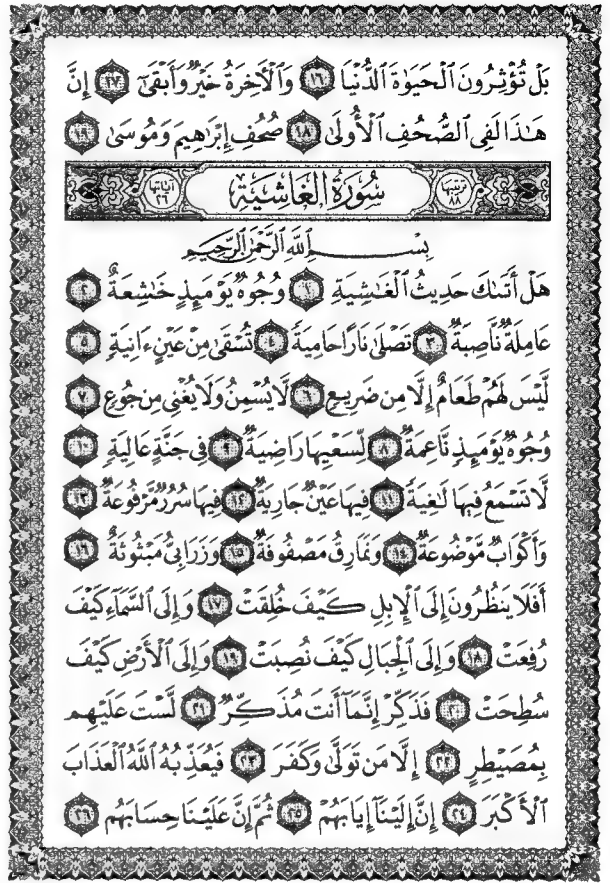 بَلْ تُؤْثِرُونَ ٱلْحَيَوٰةَ ٱلدُّنْيَا ١٦ وَٱلْأَخِرَةُ خَيْرٌ وَأَبْقَىٰٓ ١٧ إِنَّ
هَـٰذَا لَفِى ٱلصُّحُفِ ٱلْأُولَىٰ ١٨ صُحُفِ إِبْرَٰهِيمَ وَمُوسَىٰ ١٩
ترتيبها ٨٨ سُورَةُ الغَاشِيَةِ آياتها ٢٦
بِسْمِ ٱللَّهِ ٱلرَّحْمَـٰنِ ٱلرَّحِيمِ
هَلْ أَتَىٰكَ حَدِيثُ ٱلْغَـٰشِيَةِ ١ وُجُوهٌ يَوْمَئِذٍ خَـٰشِعَةٌ ٢
عَامِلَةٌ نَّاصِبَةٌ ٣ تَصْلَىٰ نَارًا حَامِيَةً ٤ تُسْقَىٰ مِنْ عَيْنٍ ءَانِيَةٍ ٥
لَّيْسَ لَهُمْ طَعَامٌ إِلَّا مِن ضَرِيعٍ ٦ لَّا يُسْمِنُ وَلَا يُغْنِى مِن جُوعٍ ٧
وُجُوهٌ يَوْمَئِذٍ نَّاعِمَةٌ ٨ لِّسَعْيِهَا رَاضِيَةٌ ٩ فِى جَنَّةٍ عَالِيَةٍ ١٠
لَّا تَسْمَعُ فِيهَا لَـٰغِيَةً ١١ فِيهَا عَيْنٌ جَارِيَةٌ ١٢ فِيهَا سُرُرٌ مَّرْفُوعَةٌ ١٣
وَأَكْوَابٌ مَّوْضُوعَةٌ ١٤ وَنَمَارِقُ مَصْفُوفَةٌ ١٥ وَزَرَابِىُّ مَبْثُوثَةٌ ١٦
أَفَلَا يَنظُرُونَ إِلَى ٱلْإِبِلِ كَيْفَ خُلِقَتْ ١٧ وَإِلَى ٱلسَّمَآءِ كَيْفَ
رُفِعَتْ ١٨ وَإِلَى ٱلْجِبَالِ كَيْفَ نُصِبَتْ ١٩ وَإِلَى ٱلْأَرْضِ كَيْفَ
سُطِحَتْ ٢٠ فَذَكِّرْ إِنَّمَآ أَنتَ مُذَكِّرٌ ٢١ لَّسْتَ عَلَيْهِم
بِمُصَيْطِرٍ ٢٢ إِلَّا مَن تَوَلَّىٰ وَكَفَرَ ٢٣ فَيُعَذِّبُهُ ٱللَّهُ ٱلْعَذَابَ
ٱلْأَكْبَرَ ٢٤ إِنَّ إِلَيْنَآ إِيَابَهُمْ ٢٥ ثُمَّ إِنَّ عَلَيْنَا حِسَابَهُم ٢٦